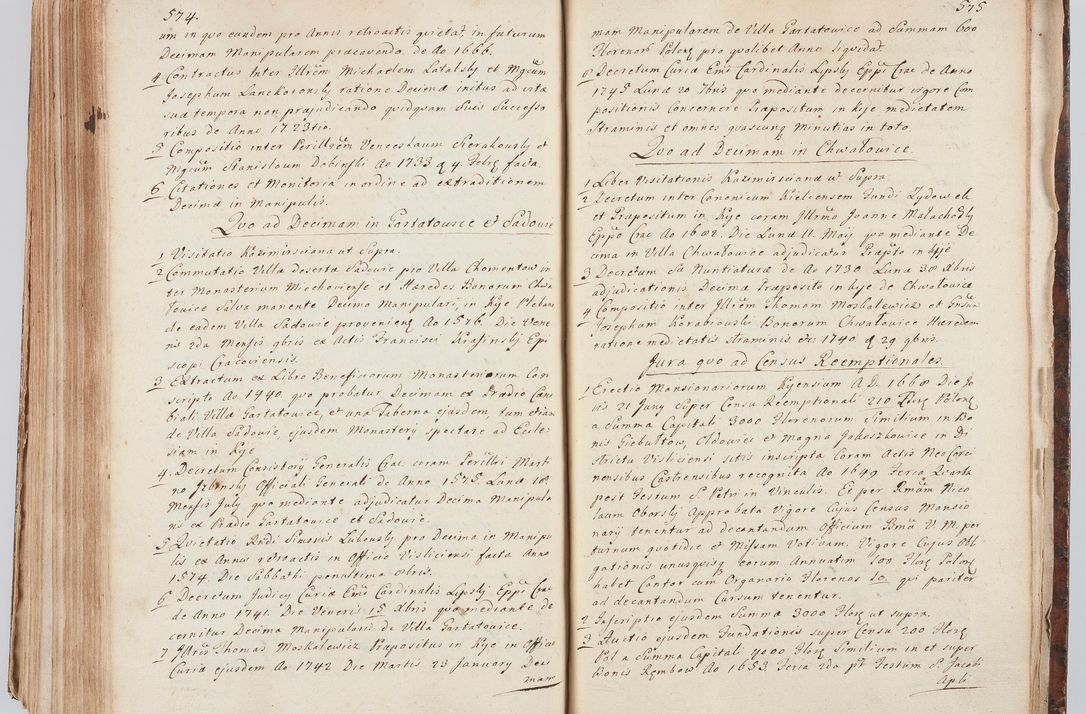 574.
um in quo eundem pro Annis retroactis quietat in futurum
Decimam Manipularem praecavendo. de Ao 1666.
4 Contractus Inter Illrem Michaelem Latalsky et Mgcum
Josephum Lanckoronsky ratione Decima initus ad vita
sua tempora non praejudicando quidquam Suis Successo
ribus de Anno 1723tio.
5 Compositio inter Perillrem Venceslaum Sierakowsky et
Mgcum Stanislaum Dobinsky Ao 1733 4 Febrz facta.
6 Citationes et Monitoria in ordine ad extraditionem
Decima in Manipulis.
Quo ad Decimam in Gartatowice et Sadowie
1 Visitatio Kazimirsciana ut Supra.
2 Commutatio Villa Deserta Sadowie pro Villa Chomentow in
ter Monasterium Miechoviense et Haeredes Bonorum Chwa
Towice Salva manente Decima Manipulari, in Kije Plebano
de eadem Villa Sadowie provenienz Ao 1576. Die Vene
ris 2da Mensis 9bris ex Actis Francisci Krasinsky Epi
scopi Cracoviensis.
3 Extractum ex Libro Beneficiorum Monasteriorum Con
scripto Ao 1440 quo probatur Decimam ex Pradio Cam
biali Villa Gartatowice, et una Taberna ejusdem, tum etiam
de Villa Sadowie, ejusdem Monastery spectare ad Eccle-
siam in Kije
4. Decretum Consistory Generalis Crac. coram Perillri Marti
no Jzbinsky Officiali Generali de Anno 1575. Luna 18.
Mensis July quo mediante adjudicatur Decima Manipula
ris ex Pradio Gartatowice et Sadowie.
5 Quietatio Rndi Simonis Lubowsky pro Decima in Manipu
lis ex Annis retroactis in Officio Visliciensi facta Anno
1574. Die Sabbathi penultima 8bris.
6 Decretum Judicy Curia Emi Cardinalis Lipsky Eppi Crac
de Anno 1741. Die Veneris 15 Xbris quo mediante de
cernitur Decima Manipularis de Villa Gartatowice.
7 Illris Thomas Moskalewicz Prapositus in Kije in Officio
Curia ejusdem Ao 1742 Die Martis 23 January Deci
mam
575
mam Manipularem de Villa Gartatowice ad Summam 600
Florenorz Polorz pro quolibet Anno liquidat
8 Decretum Curia Emi Cardinalis Lipsky Eppi Crac de Anno
1745 Luna 20 7bris quo mediante decernitur vigore Com
positionis Concernere Prapositum in Kije medietatem
Straminis et omnes quascunq Minutias in toto.
Quo ad Decimam in Chwatowice.
1 Liber Visitationis Kazimirsciana ut Supra
2 Decretum inter Canonicum Kielcensem Fundi Zydowek
et Prapositum in Kije coram Illrmo Joanne Malachosky
Eppo Crac Ao 1682. Die Luna 11. Maij quo mediante De
cima in Villa Chwatowice adjudicatur Prapto in Kije
3 Decretum Sa Nuntiatura de Ao 1730 Luna 30 Xbris
adjudicationis Decima Praposito in Kije de Chwatowice
4 Compositio inter Illrem Thomam Moskalewicz et Gnsum
Josephum Karabiowski Bonorum Chwatowice Haeredem
ratione medietatis straminis etc 1740 29 9bris.
Jura quo ad Census Reemptionales.
1 Erectio Mansionariorum Kijensium A.D. 1668 Die Jo
vis 21 Juny Super Censu Reemptionali 210 Florz Polorz
a Summa Capitali 3000 Florenorum Similium in Bo
nis Giebultow, Oldowice et Magna Jakuszkowice in Di
strictu Visliciensi sitis inscripta Coram Actis Neo Corci
nensibus Castrensibus recognita Ao 1649 Feria Quarta
post Festum S. Petri in Vinculis. Et per Rmum Nico
laum Oborsky Approbata Vigore Cujus Census Mansio
nary tenentur ad decantandum Officium Bma V. M. per
turnum quotidie et Missam Votivam. Vigore Cujus Obl
gationis unusquisq eorum Annuatim 100 Florz Polorz
habet Cantor cum Organario Florenos 10 qui pariter
ad decantandum Cursum tenentur.
2 Inscriptio ejusdem Summa 3000 Florz ut supra.
3 Auctio ejusdem Fundationis super Censu 200 Florz
Pol a Summa Capitali 4000 Florz Similium in et super
Bonis Rembow Ao 1653 Feria 2da pt Festum S. Jacobi
Apli